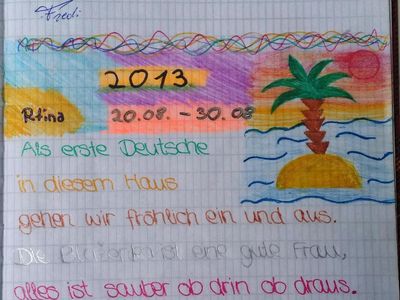 Fredi
2013
Rtina
20.08. - 30.08
Als erste Deutsche
in diesem Haus
gehen wir fröhlich ein und aus.
Die ist eine gute Frau,
alles ist sauber ob drin ob draus.